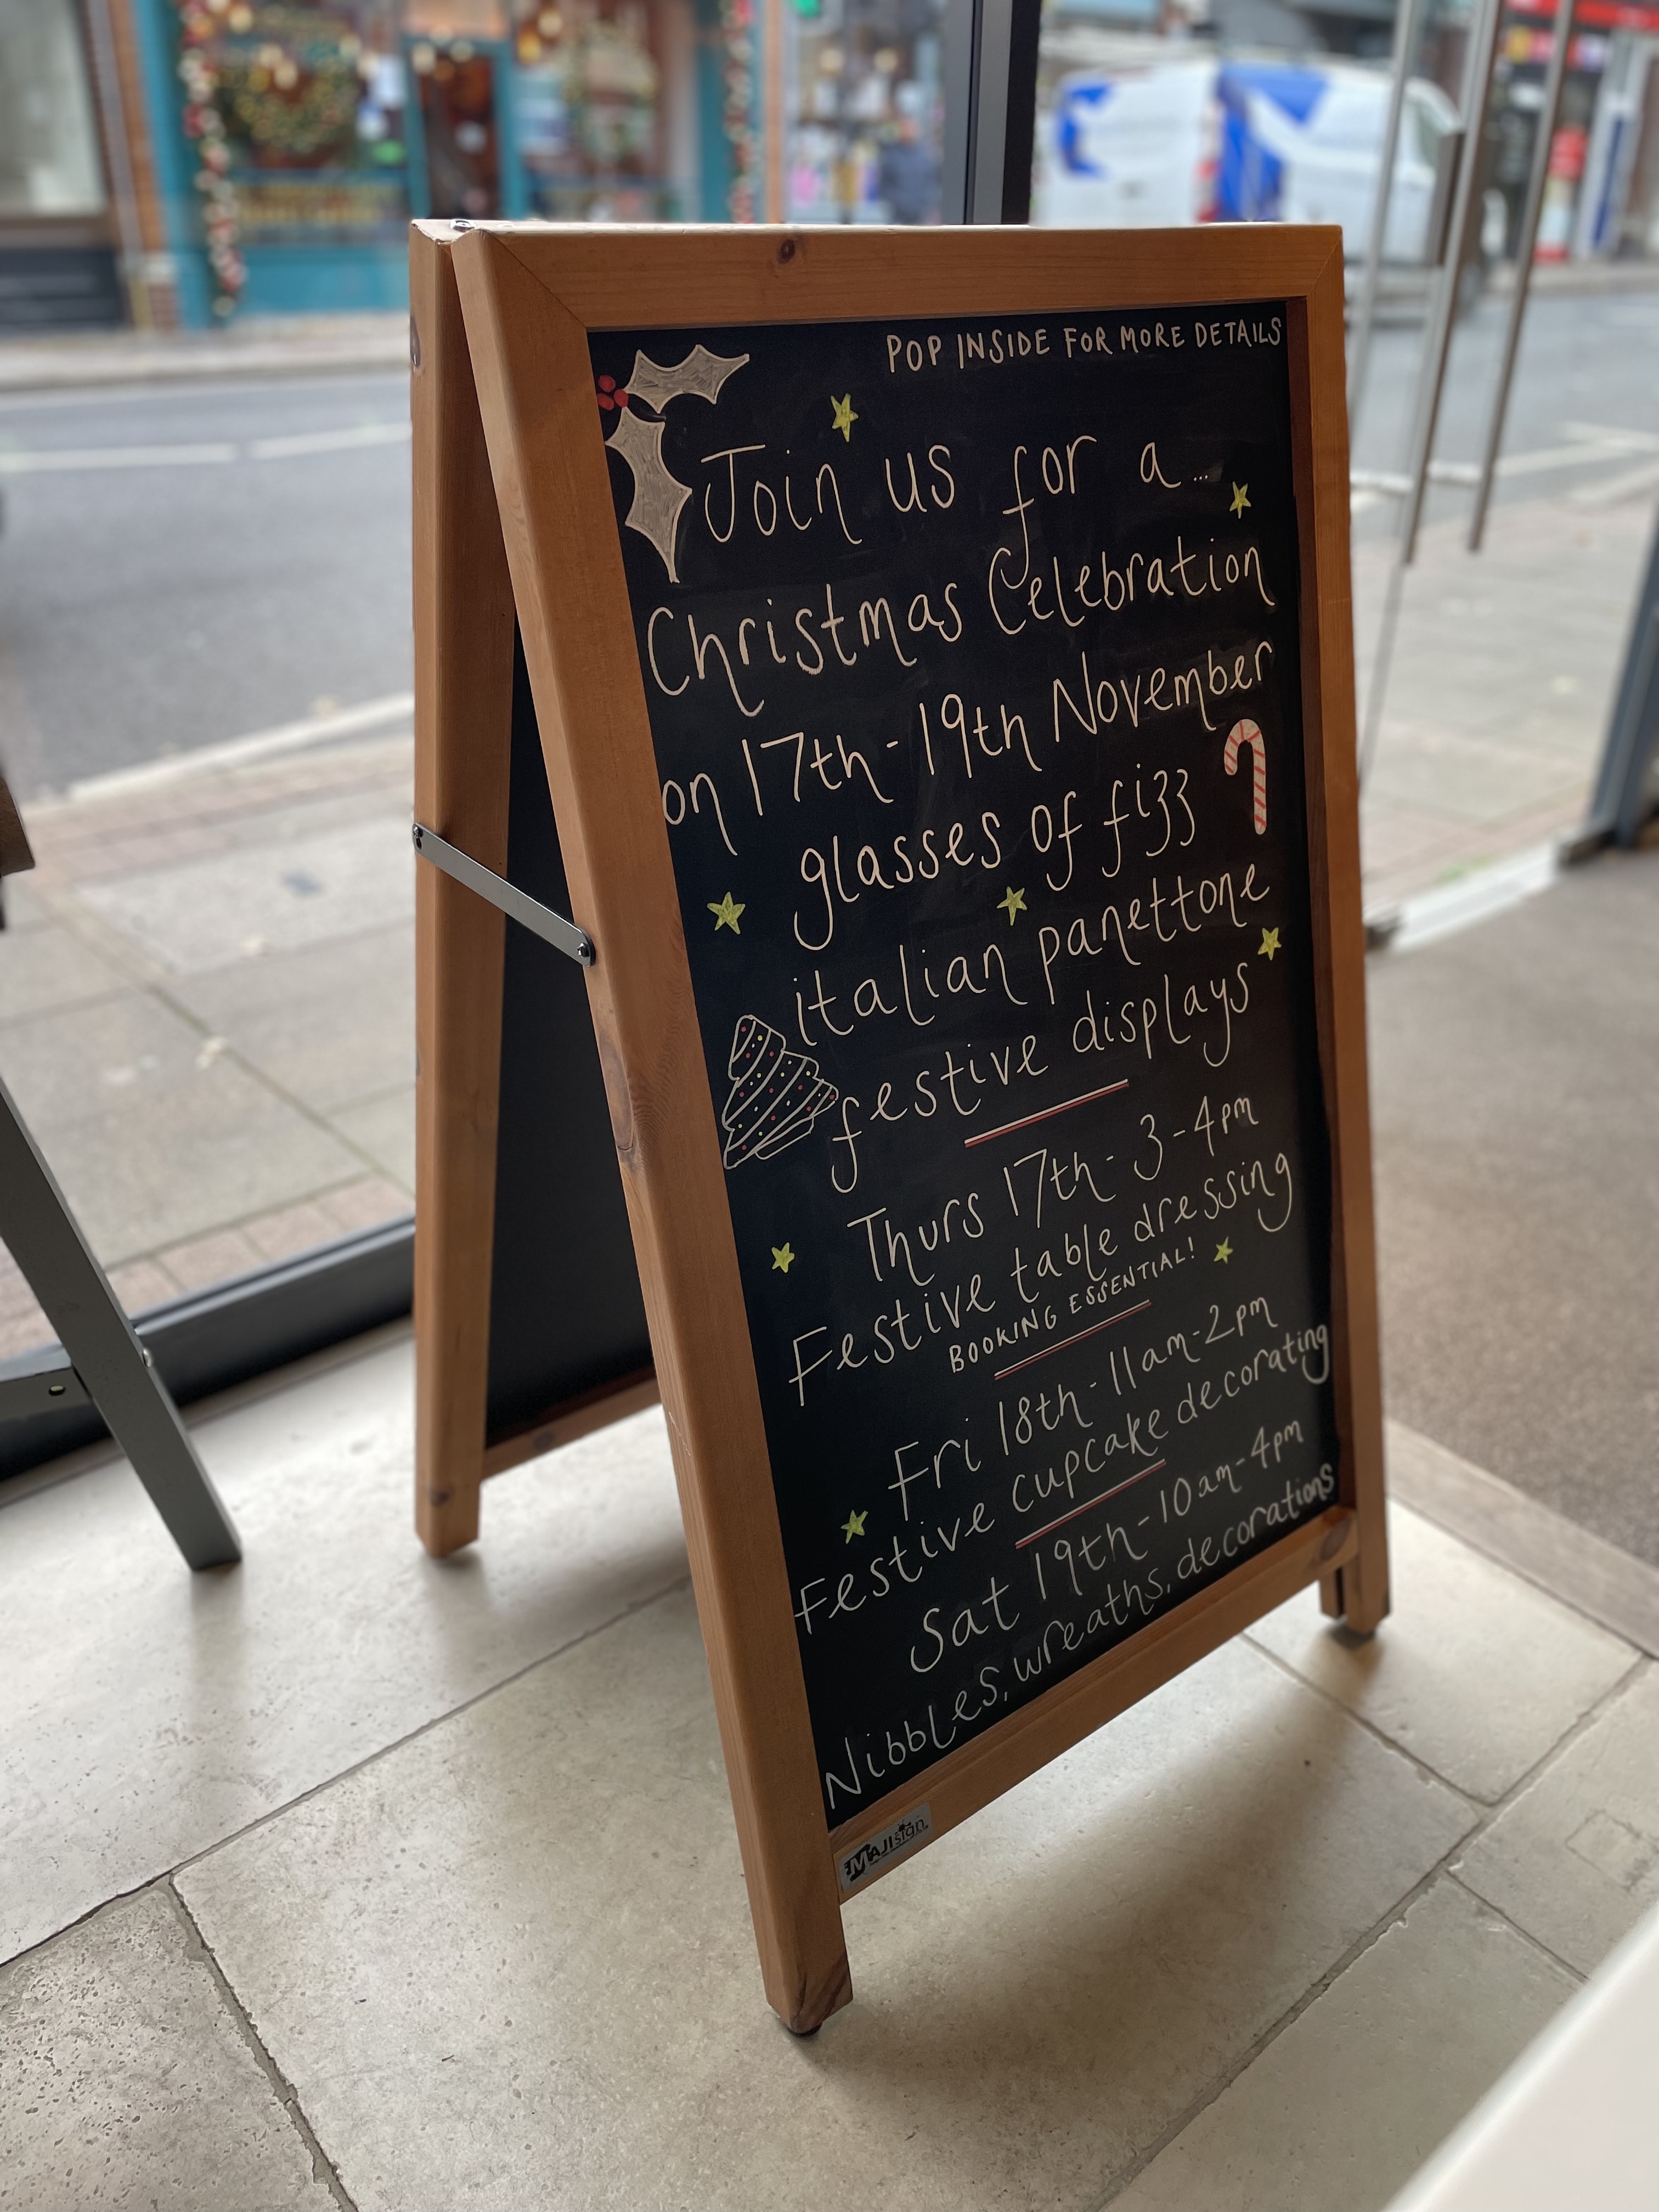 POP INSIDE FOR MORE DETAILS
Join us for a...
Christmas Celebration
on 17th-19th November
glasses of fizz
italian panettone
festive displays
Thurs 17th - 3-4pm
Festive table dressing
BOOKING ESSENTIAL!
Fri 18th - 11am-2pm
Festive cupcake decorating
Sat 19th - 10am-4pm
Nibbles, wreaths, decorations
MAJISign